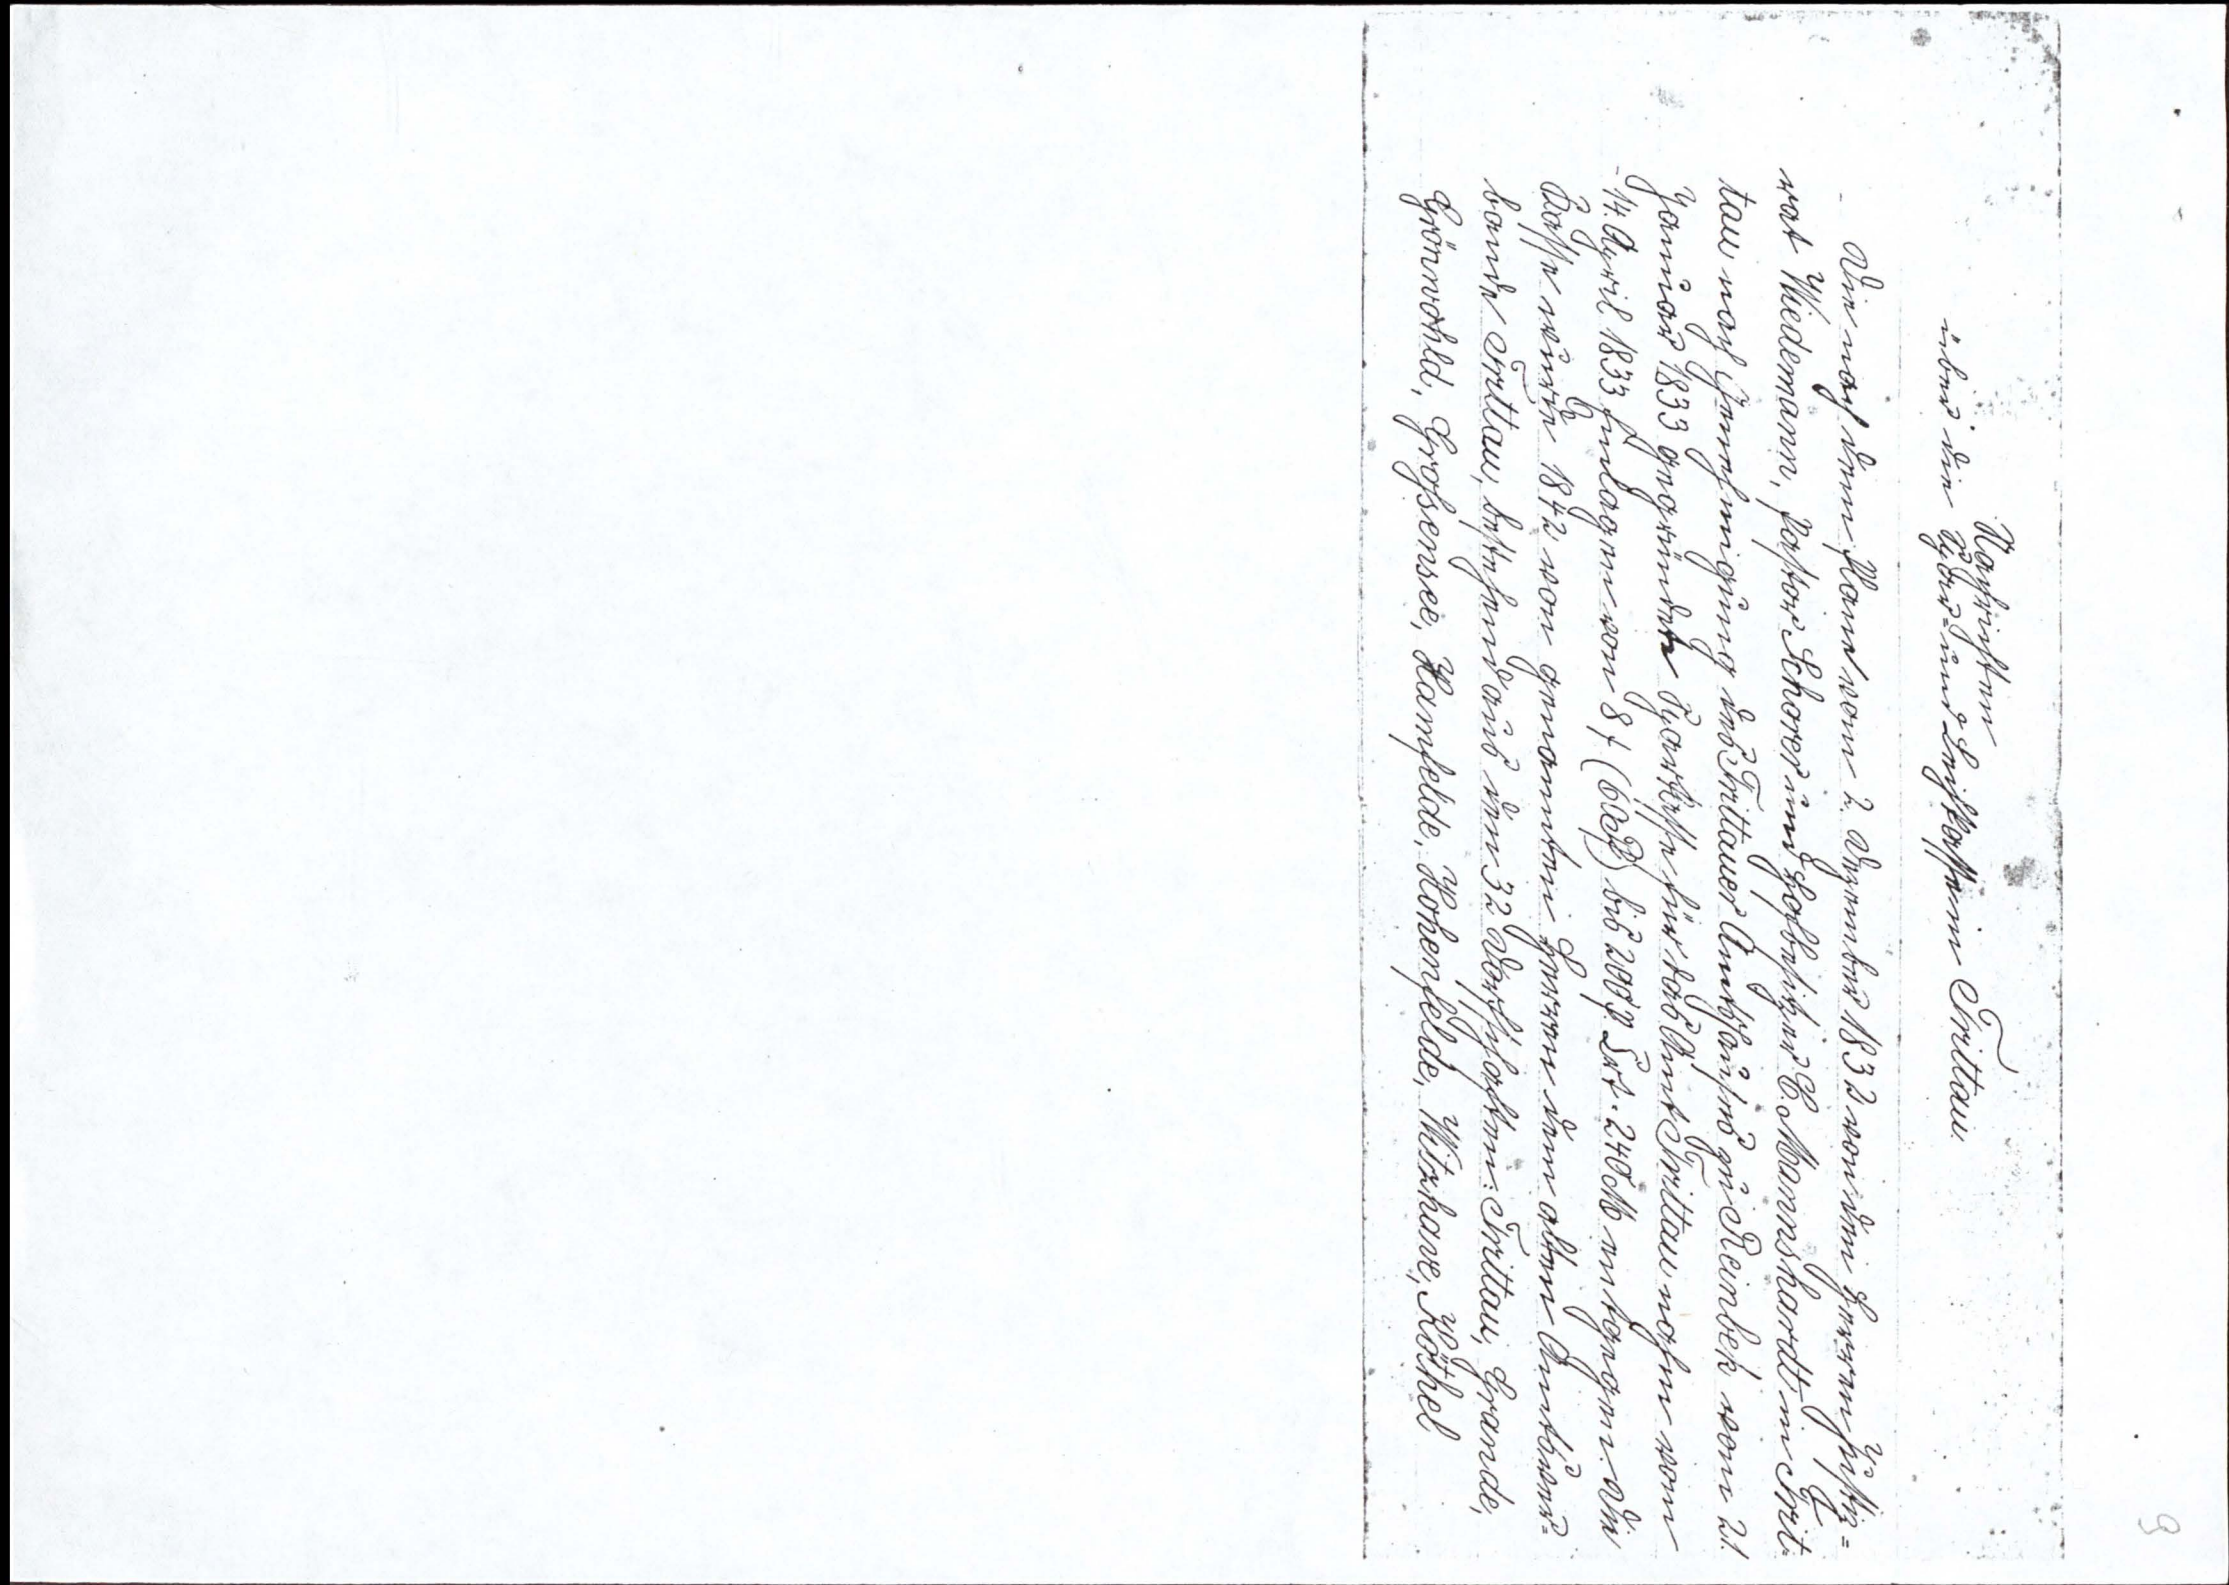 Nachrichten
über die Spar= und Leihkasse in Trittau
Die nach dem Plane vom 2. Dezember 1832 von den Herren Justiz=
rat Wiedemann, Pastor Scholer und Hofbesitzer C. Mannshardt in Trit-
tau nach Genehmigung des Trittauer Amthauses zu Reinbek vom 21.
Januar 1833 gegründete Sparkasse für das Amt Trittau nahm vom
14. April 1833 Einlagen von 8 ß (60 ₰) bis 200 ℳ Crt. 240 M entgegen. Die
Kasse wurde 1842 von genannten Herren dem alten Amtsver=
bande Trittau, bestehend aus den 32 Dorfschaften: Trittau, Grande,
Grönwohld, Großensee, Hamfelde, Hohenfelde, Witzhave, Köthel
9